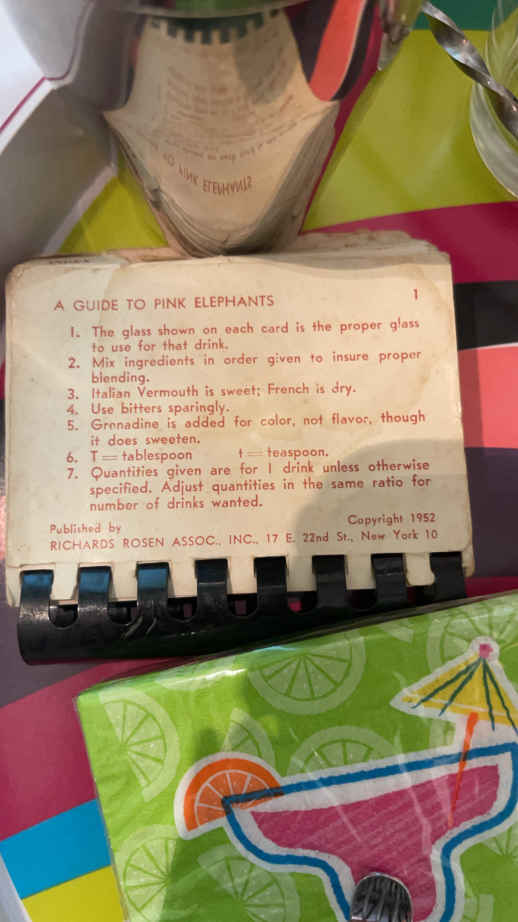 A GUIDE TO PINK ELEPHANTS 1
1. The glass shown on each card is the proper glass
to use for that drink.
2. Mix ingredients in order given to insure proper
blending.
3. Italian Vermouth is sweet; French is dry.
4. Use bitters sparingly.
5. Grenadine is added for color, not flavor, though
it does sweeten.
6. T = tablespoon t = teaspoon.
7. Quantities given are for 1 drink unless otherwise
specified. Adjust quantities in the same ratio for
number of drinks wanted.
Published by Copyright 1952
RICHARDS ROSEN ASSOC., INC., 17 E. 22nd St., New York 10